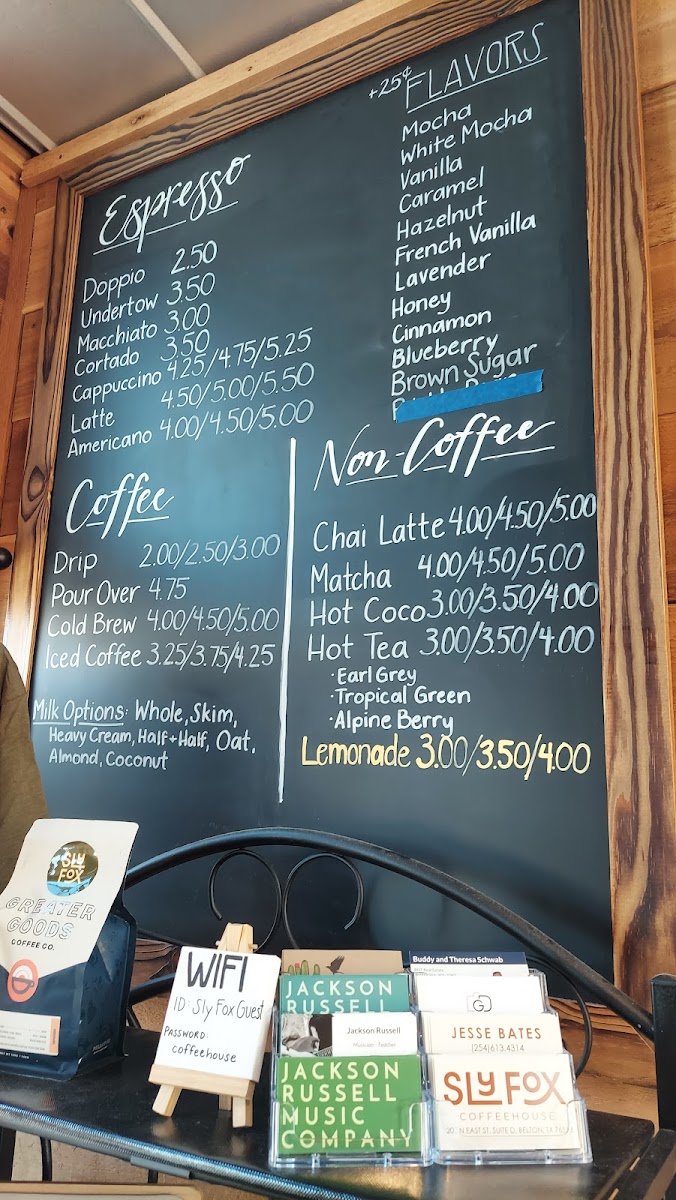 Espresso
Doppio 2.50
Undertow 3.50
Macchiato 3.00
Cortado 3.50
Cappuccino 4.25/4.75/5.25
Latte 4.50/5.00/5.50
Americano 4.00/4.50/5.00
+25¢ FLAVORS
Mocha
White Mocha
Vanilla
Caramel
Hazelnut
French Vanilla
Lavender
Honey
Cinnamon
Blueberry
Brown Sugar
Coffee
Drip 2.00/2.50/3.00
Pour Over 4.75
Cold Brew 4.00/4.50/5.00
Iced Coffee 3.25/3.75/4.25
Milk Options: Whole, Skim,
Heavy Cream, Half+Half, Oat,
Almond, Coconut
Non-Coffee
Chai Latte 4.00/4.50/5.00
Matcha 4.00/4.50/5.00
Hot Coco 3.00/3.50/4.00
Hot Tea 3.00/3.50/4.00
·Earl Grey
·Tropical Green
·Alpine Berry
Lemonade 3.00/3.50/4.00
SLY
FOX
GREATER
GOODS
COFFEE CO.
WIFI
ID: Sly Fox Guest
PASSWORD:
coffeehouse
JACKSON
RUSSELL
Jackson Russell
Musician · Teacher
JACKSON
RUSSELL
MUSIC
COMPANY
Buddy and Theresa Schwab
G
JESSE BATES
(254)613.4314
SLY FOX
COFFEEHOUSE
N EAST ST. SUITE D, BELTON, TX